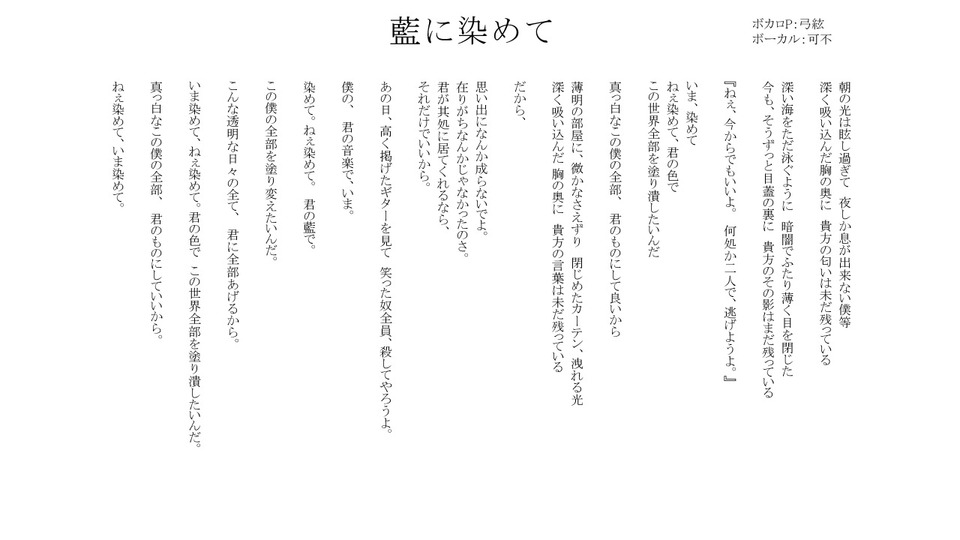 藍に染めて
ボカロP：弓絃
ボーカル：可不
朝の光は眩し過ぎて　夜しか息が出来ない僕等
深く吸い込んだ胸の奥に　貴方の匂いは未だ残っている
深い海をただ泳ぐように　暗闇でふたり薄く目を閉じた
今も、そうずっと目蓋の裏に　貴方のその影はまだ残っている
『ねぇ、今からでもいいよ。　何処か二人で、逃げようよ。』
いま、染めて
ねぇ染めて、君の色で
この世界全部を塗り潰したいんだ
真っ白なこの僕の全部、　君のものにして良いから
薄明の部屋に、微かなさえずり　閉じめたカーテン、洩れる光
深く吸い込んだ 胸の奥に　貴方の言葉は未だ残っている
だから、
思い出になんか成らないでよ。
在りがちなんかじゃなかったのさ。
君が其処に居てくれるなら、
それだけでいいから。
あの日、高く掲げたギターを見て　笑った奴全員、殺してやろうよ。
僕の、　君の音楽で、いま。
染めて。ねぇ染めて。　君の藍で。
この僕の全部を塗り変えたいんだ。
こんな透明な日々の全て、　君に全部あげるから。
いま染めて、ねぇ染めて。君の色で　この世界全部を塗り潰したいんだ。
真っ白なこの僕の全部、　君のものにしていいから。
ねぇ染めて、いま染めて。